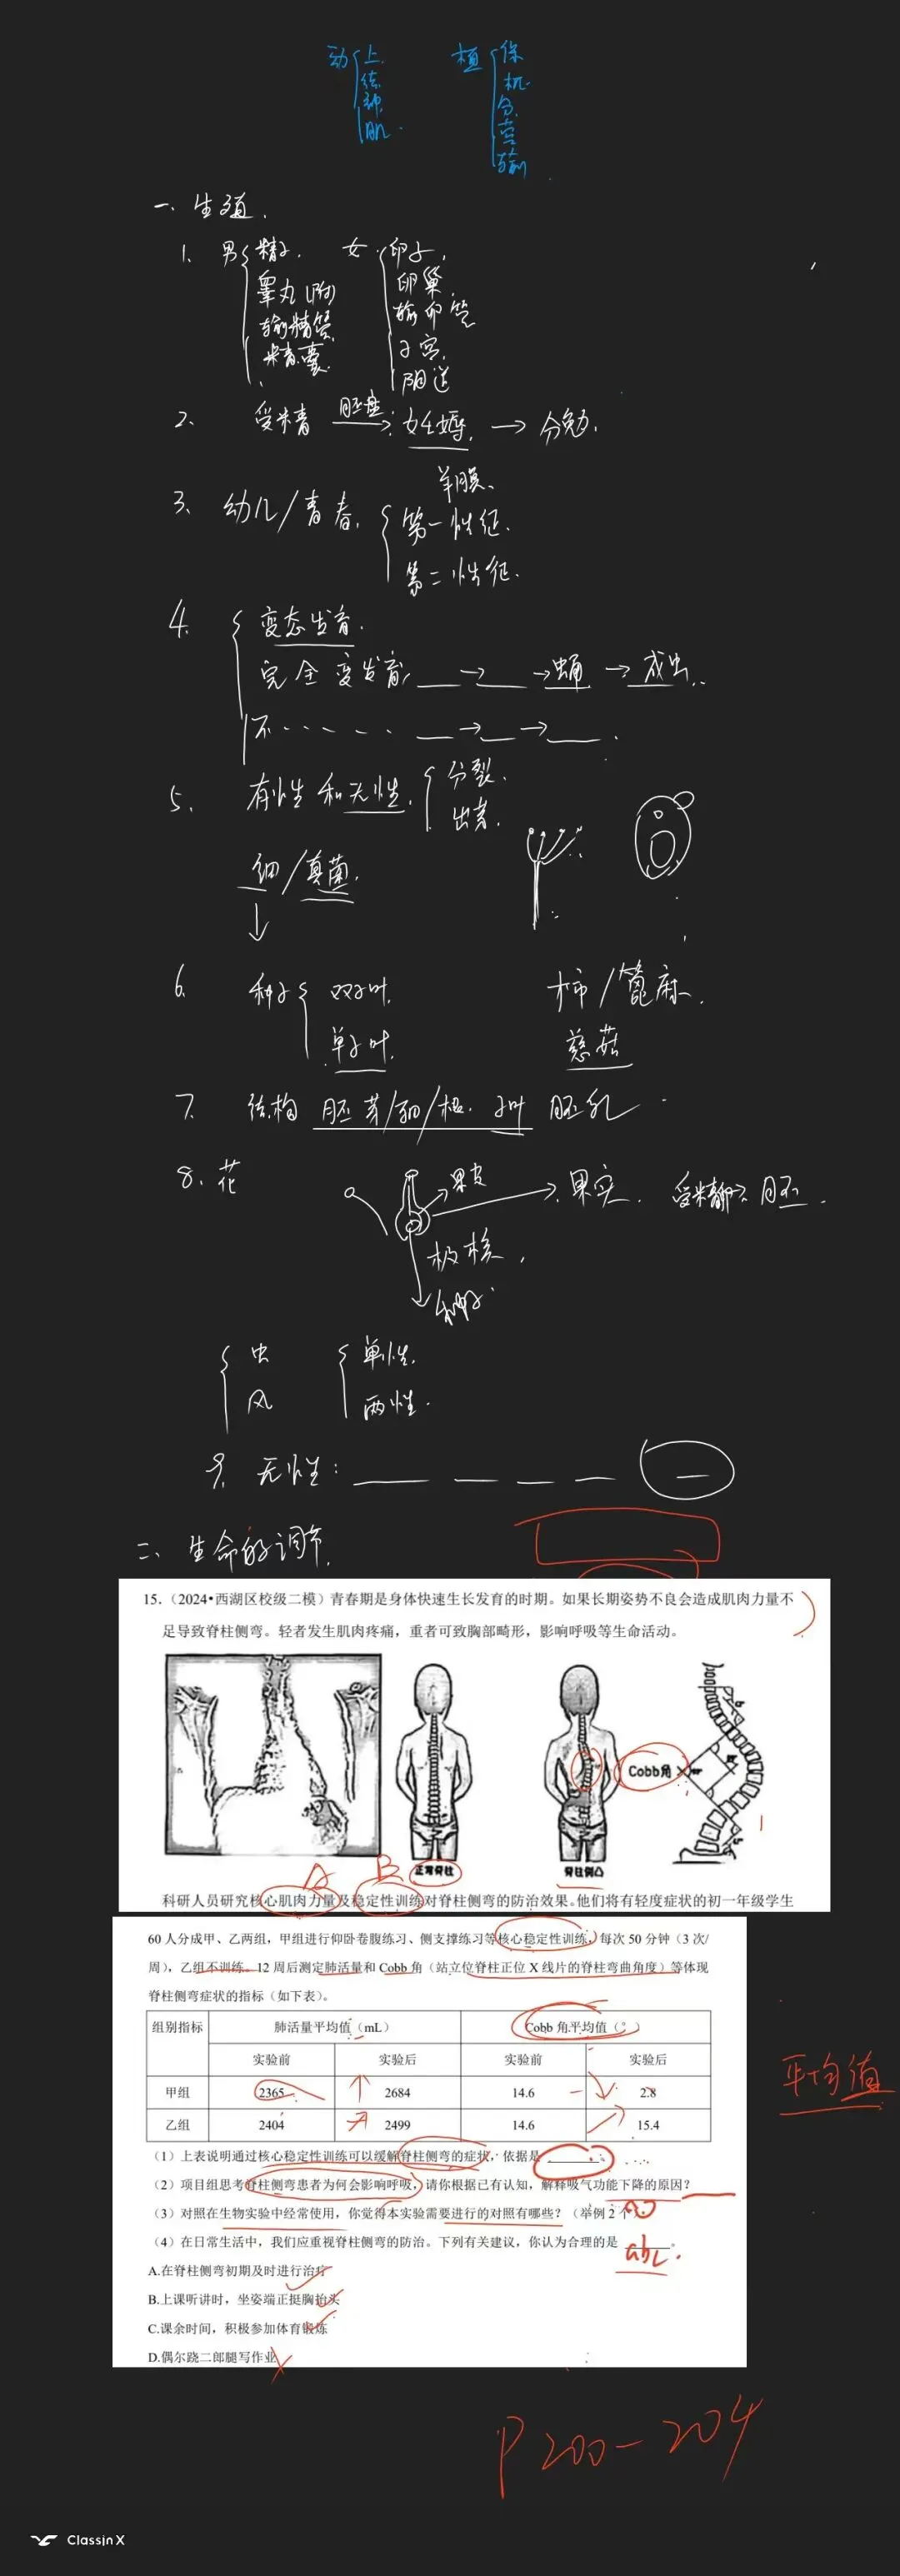 动 上 植 保
结 机
神 分
肌 营
输
一、生殖.
1. 男 精子. 女 卵子.
睾丸(附) 卵巢.
输精管 输卵管
精囊. 子宫.
阴道
2. 受精 胚盘 → 妊娠. → 分娩.
羊膜、
3. 幼儿/青春. 第一性征.
第二性征.
4. 变态发育.
完全变发育, __ → __ → 蛹 → 成虫..
不 - - - - - __ → __ → __ .
5. 有性和无性. 分裂.
出芽.
细/真菌.
↓
6. 种子 双子叶. 柿/篦麻.
单子叶. 慈菇
7. 结构 胚芽/轴/根. 子叶 胚乳
8. 花
果皮 果实. 受精卵→胚.
极核,
种子
虫 单性.
风 两性.
9. 无性: __ __ __ __ __
二、生命的调节.
15.(2024•西湖区校级二模)青春期是身体快速生长发育的时期。如果长期姿势不良会造成肌肉力量不
足导致脊柱侧弯。轻者发生肌肉疼痛，重者可致胸部畸形，影响呼吸等生命活动。
Cobb角
正常脊柱 脊柱侧凸
A B
科研人员研究核心肌肉力量及稳定性训练对脊柱侧弯的防治效果。他们将有轻度症状的初一年级学生
60 人分成甲、乙两组，甲组进行仰卧卷腹练习、侧支撑练习等核心稳定性训练，每次 50 分钟（3 次/
周），乙组不训练。12 周后测定肺活量和 Cobb 角（站立位脊柱正位 X 线片的脊柱弯曲角度）等体现
脊柱侧弯症状的指标（如下表）。
组别指标 肺活量平均值（mL） Cobb 角平均值（°）
实验前 实验后 实验前 实验后
甲组 2365 2684 14.6 2.8
乙组 2404 2499 14.6 15.4
平均值
（1）上表说明通过核心稳定性训练可以缓解脊柱侧弯的症状，依据是 ______
（2）项目组思考脊柱侧弯患者为何会影响呼吸，请你根据已有认知，解释吸气功能下降的原因？
（3）对照在生物实验中经常使用，你觉得本实验需要进行的对照有哪些？（举例 2 个
（4）在日常生活中，我们应重视脊柱侧弯的防治。下列有关建议，你认为合理的是 abc 。
A.在脊柱侧弯初期及时进行治疗
B.上课听讲时，坐姿端正挺胸抬头
C.课余时间，积极参加体育锻炼
D.偶尔跷二郎腿写作业
P200-204
ClassIn X